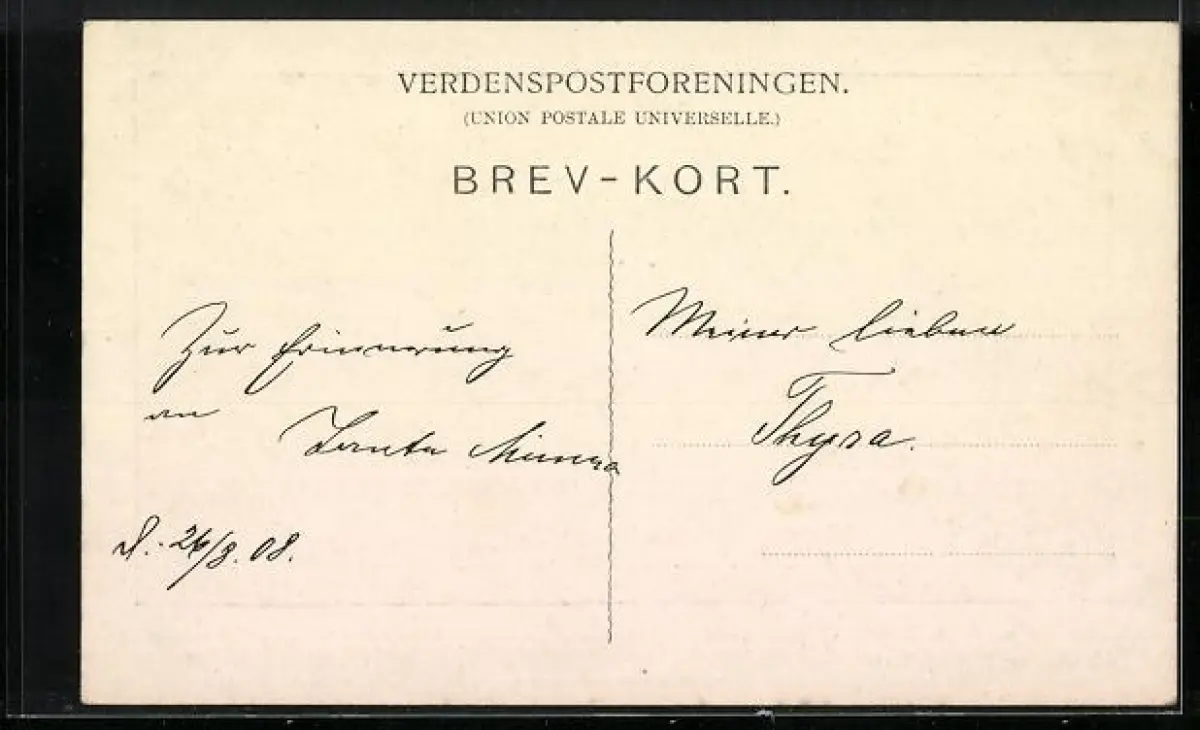 VERDENSPOSTFORENINGEN.
(UNION POSTALE UNIVERSELLE.)
BREV-KORT.
Zur Erinnerung
an
Tante
d. 26/8. 08.
Meiner lieben
Thyra.